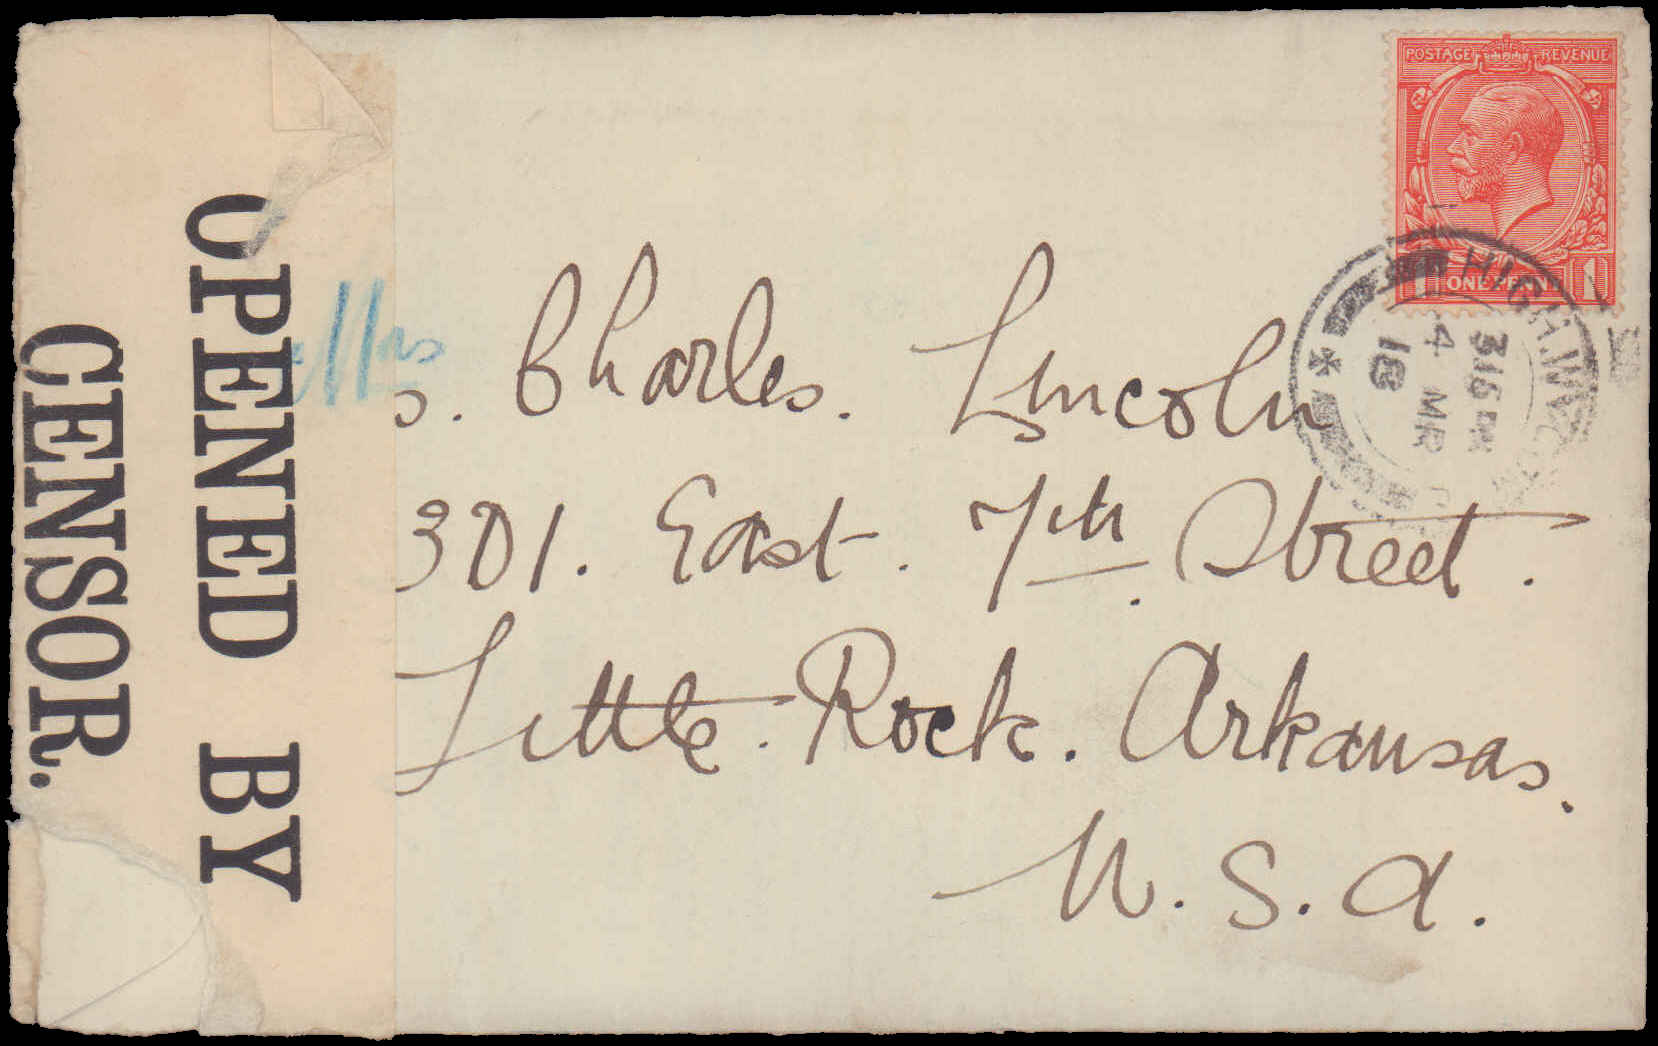 OPENED BY
CENSOR.
POSTAGE REVENUE
1 ONE PENNY 1
3 15 PM
4 MR
18
Mrs
s. Charles. Lincoln
301. East. 7th Street.
Little. Rock. Arkansas.
U. S. A.